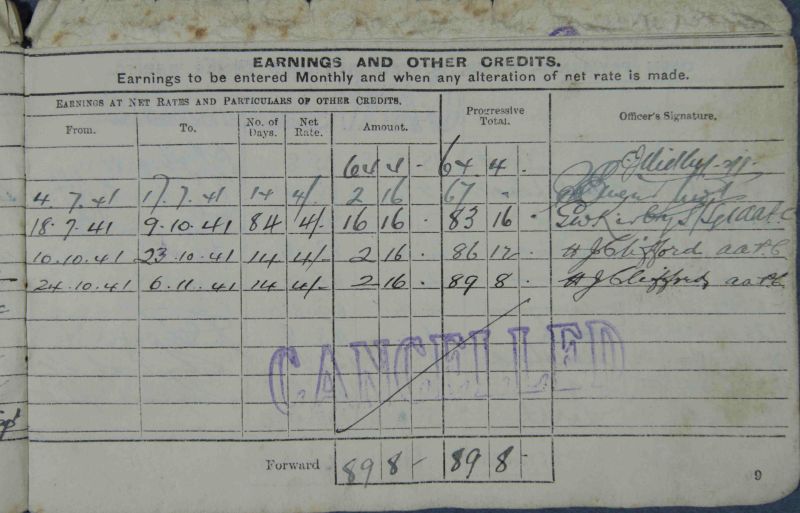 EARNINGS AND OTHER CREDITS.
Earnings to be entered Monthly and when any alteration of net rate is made.
EARNINGS AT NET RATES AND PARTICULARS OF OTHER CREDITS. Progressive Total. Officer's Signature.
From. To. No. of Days. Net Rate. Amount.
64 4 - 64 . 4 .
4 . 7 . 41 17 . 7 . 41 14 4/- 2 16 67 -
18 . 7 . 41 9 . 10 . 41 84 4/- 16 16 . 83 16 .
10 . 10 . 41 23 . 10 . 41 14 4/- 2 16 . 86 12 - H J Clifford aapc
24 . 10 . 41 6 . 11 . 41 14 4/- 2 16 . 89 8 . H J Clifford aapc
CANCELLED
Forward 89 8 - 89 8 -
9